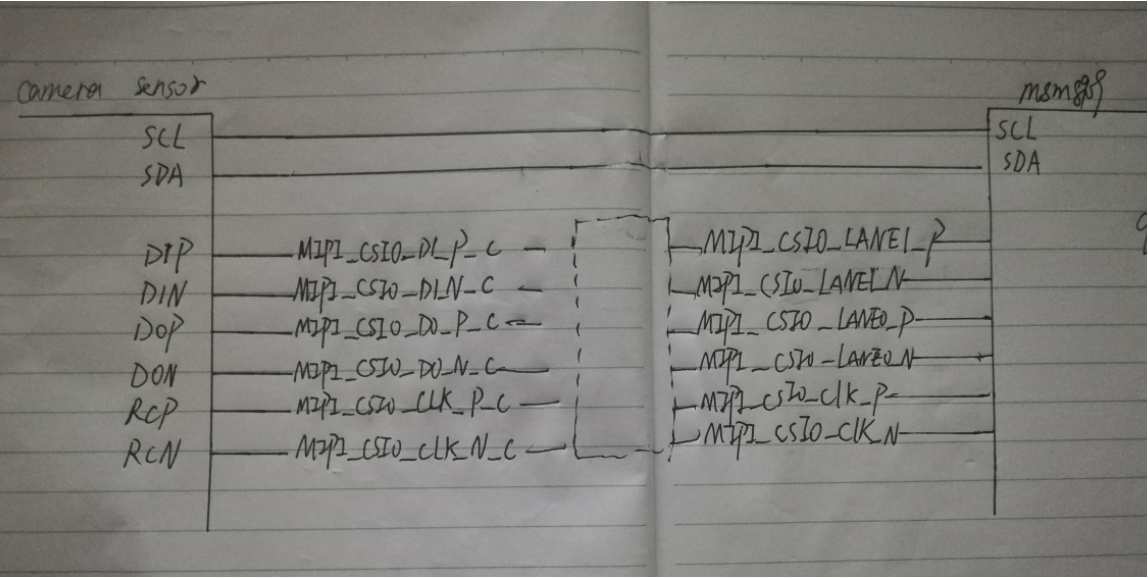 camera sensor
SCL
SDA
D1P MIPI_CSI0_D1_P_C
D1N MIPI_CSI0_D1_N_C
D0P MIPI_CSI0_D0_P_C
D0N MIPI_CSI0_D0_N_C
RCP MIPI_CSI0_CLK_P_C
RCN MIPI_CSI0_CLK_N_C
SCL
SDA
MIPI_CSI0_LANE1_P
MIPI_CSI0_LANE1_N
MIPI_CSI0_LANE0_P
MIPI_CSI0_LANE0_N
MIPI_CSI0_Clk_P
MIPI_CSI0_Clk_N